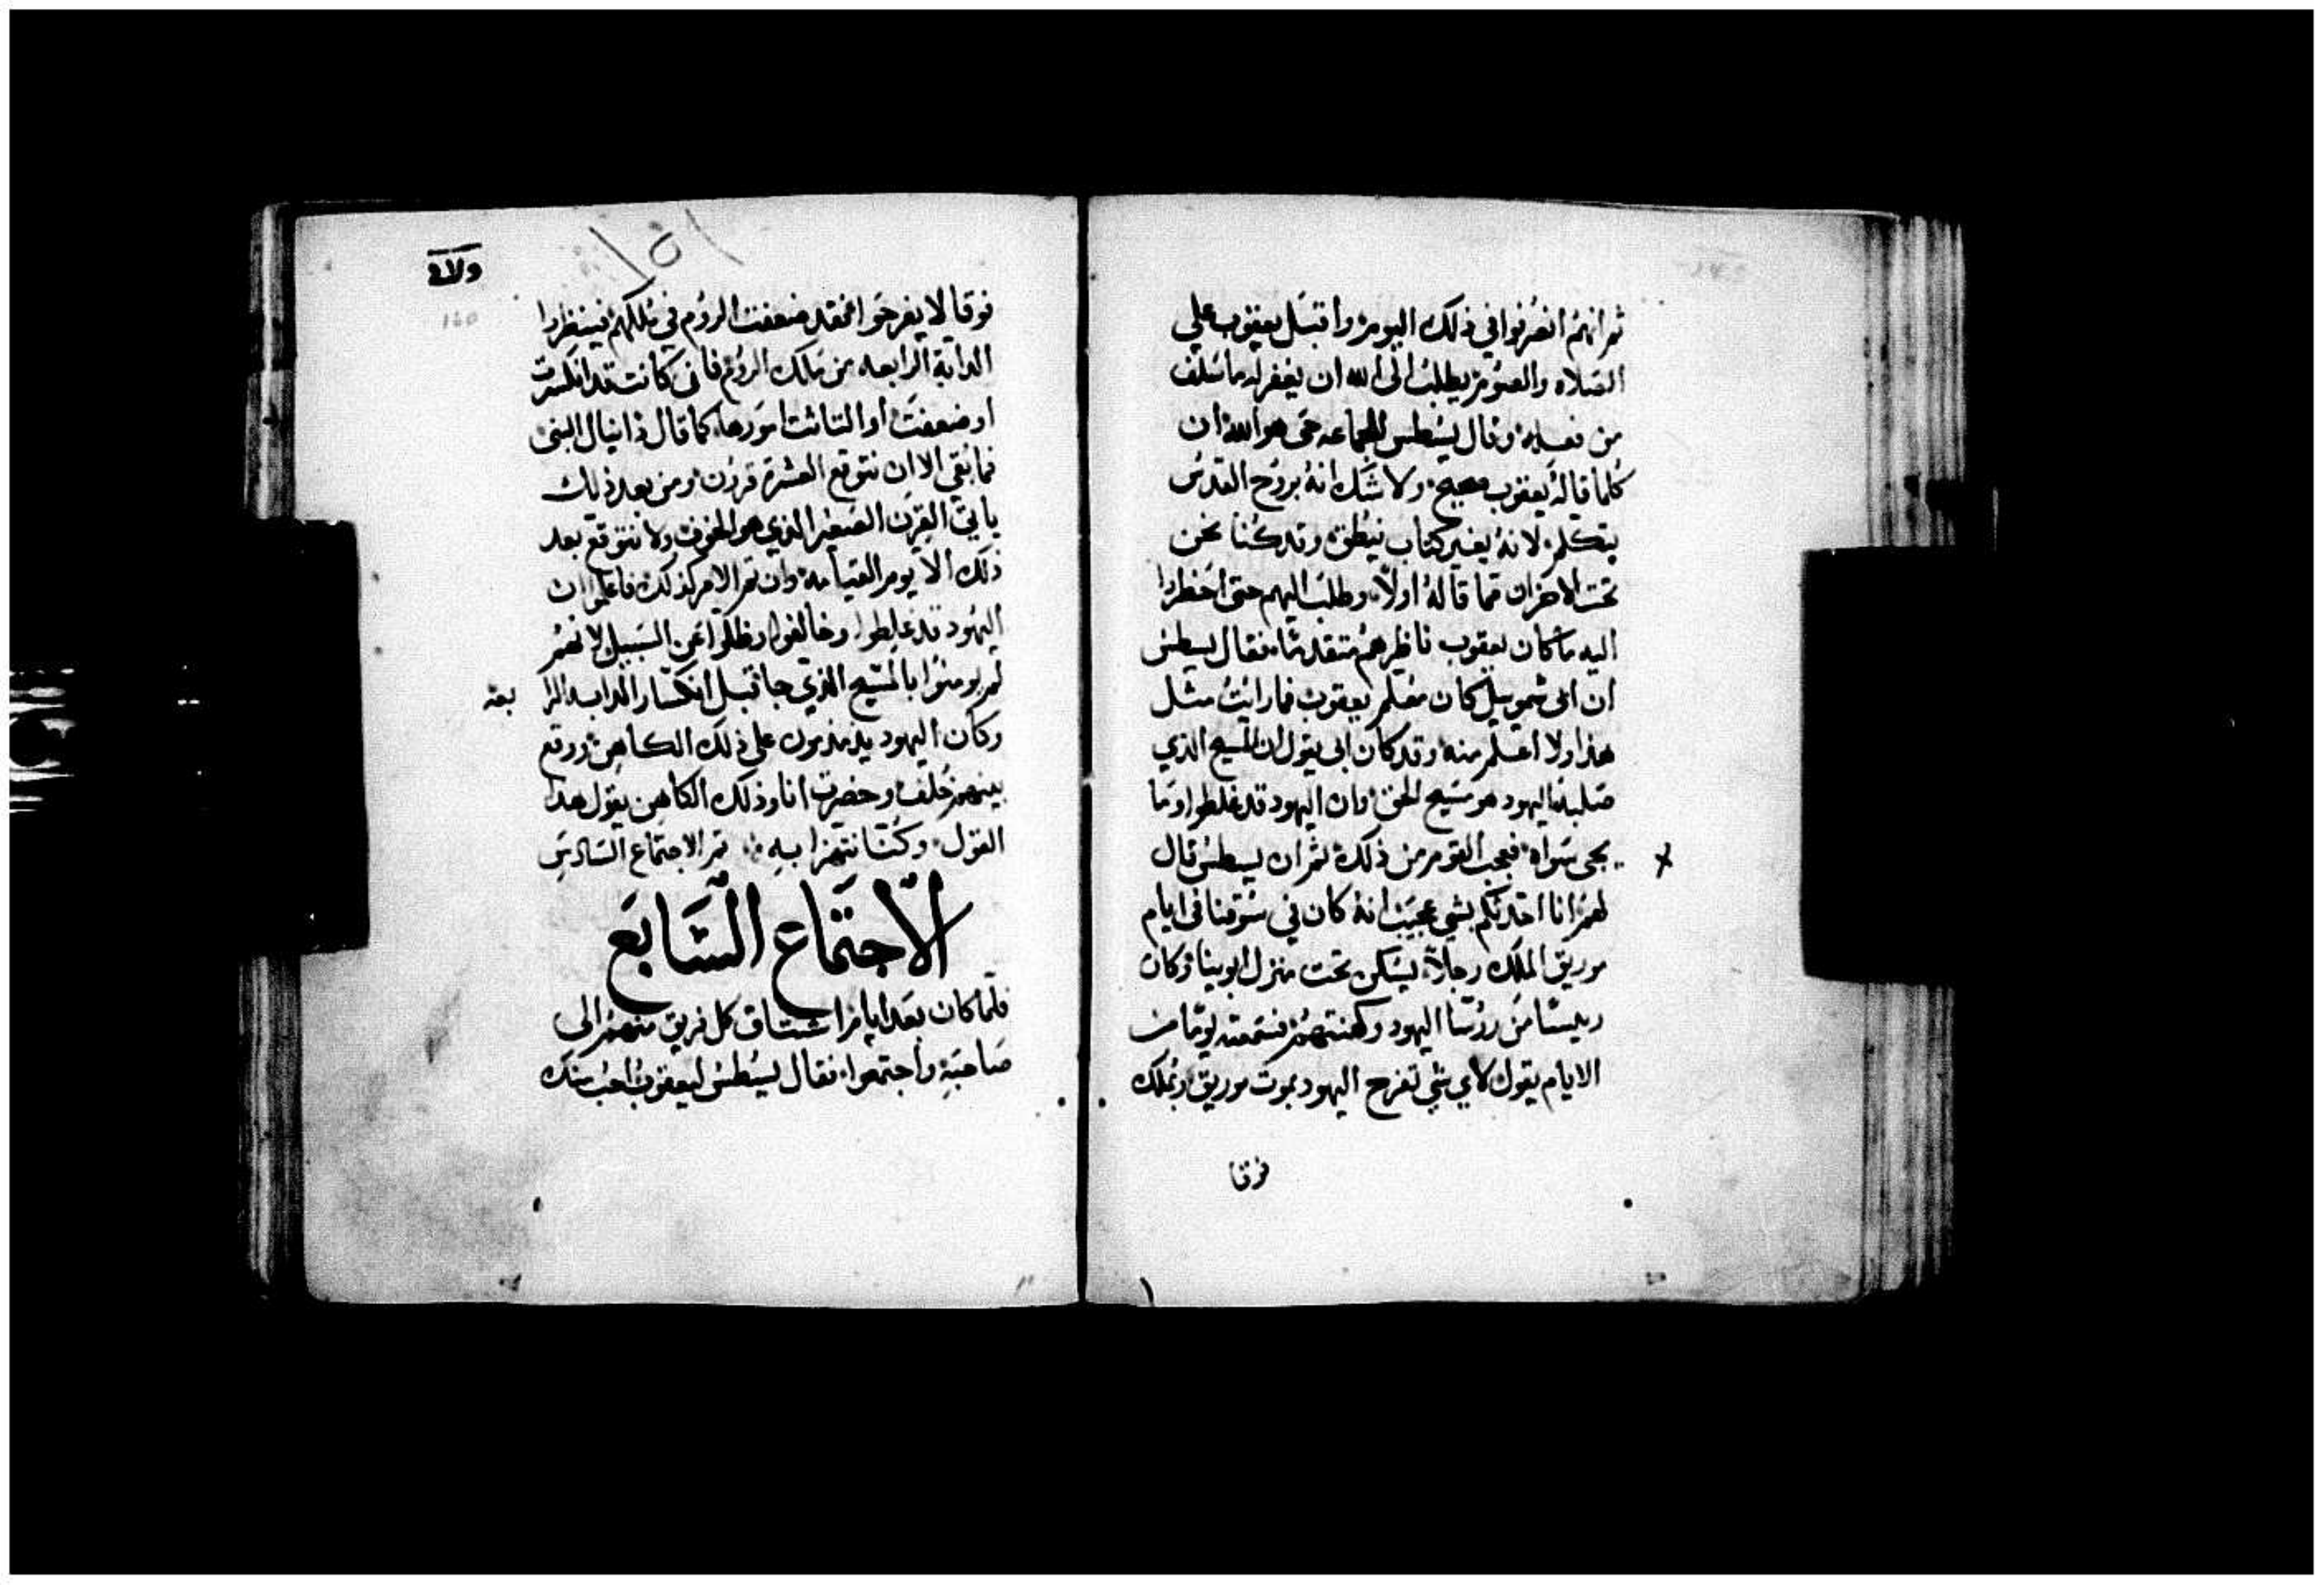 ثم انهم انصرفوا في ذلك اليوم واقبل يعقوب علي
الصلاه والصوم يطلب الى الله ان يغفر له ما سلف
من فعله وقال يسطس للجماعه حي هو الله ان
كلما قاله يعقوب صحيح ولا شك انه بروح القدس
يتكلم لانه بغير كتاب ينطق وقد كنا نحن
تحت الاحزان مما قاله اولا وطلب اليهم حتى احضروا
اليه ما كان يعقوب ناظرهم متقدما فقال يسطس
ان ابي شموييل كان معلم يعقوب فما رايت مثل
هذا ولا اعلم منه وقد كان ابي يقول ان المسيح الذي
صلبته اليهود هو مسيح الحق وان اليهود قد غلطوا وما
يجي سواه فعجب القوم من ذلك ثم ان يسطس قال
لهم انا احدثكم بشي عجيب انه كان في سوقنا في ايام
موريق الملك رجلا يسكن تحت منزل ابوينا وكان
رييسا من روسا اليهود وكهنتهم فسمعته يوما من
الايام يقول لاي شي تفرح اليهود بموت موريق وبملك
فوقا
فوقا لا يفرحوا فقد ضعفت الروم في ملكهم فينظروا
الدابة الرابعه من ملك الروم فان كانت قد انكسرت
او ضعفت او التاثت امورها كما قال دانيال النبي
فما بقي الا ان نتوقع العشرة قرون ومن بعد ذلك
ياتي القرن الصغير الذي هو المخوف ولا نتوقع بعد
ذلك الا يوم القيامه وان تم الامر كذلك فاعلموا ان
اليهود قد غلطوا وخالفوا وظلوا عن السبيل لانهم
لم يومنوا بالمسيح الذي جا قبل انكسار الدابه الرا
بعه
وكان اليهود يدمدمون على ذلك الكاهن ووقع
بينهم خلف وحضرت انا وذلك الكاهن يقول هذا
القول وكنا نتهزا به تم الاجتماع السادس
الاجتماع السابع
فلما كان بعد ايام اشتاق كل فريق منهم الى
صاحبه واجتمعوا فقال يسطس ليعقوب احب منك